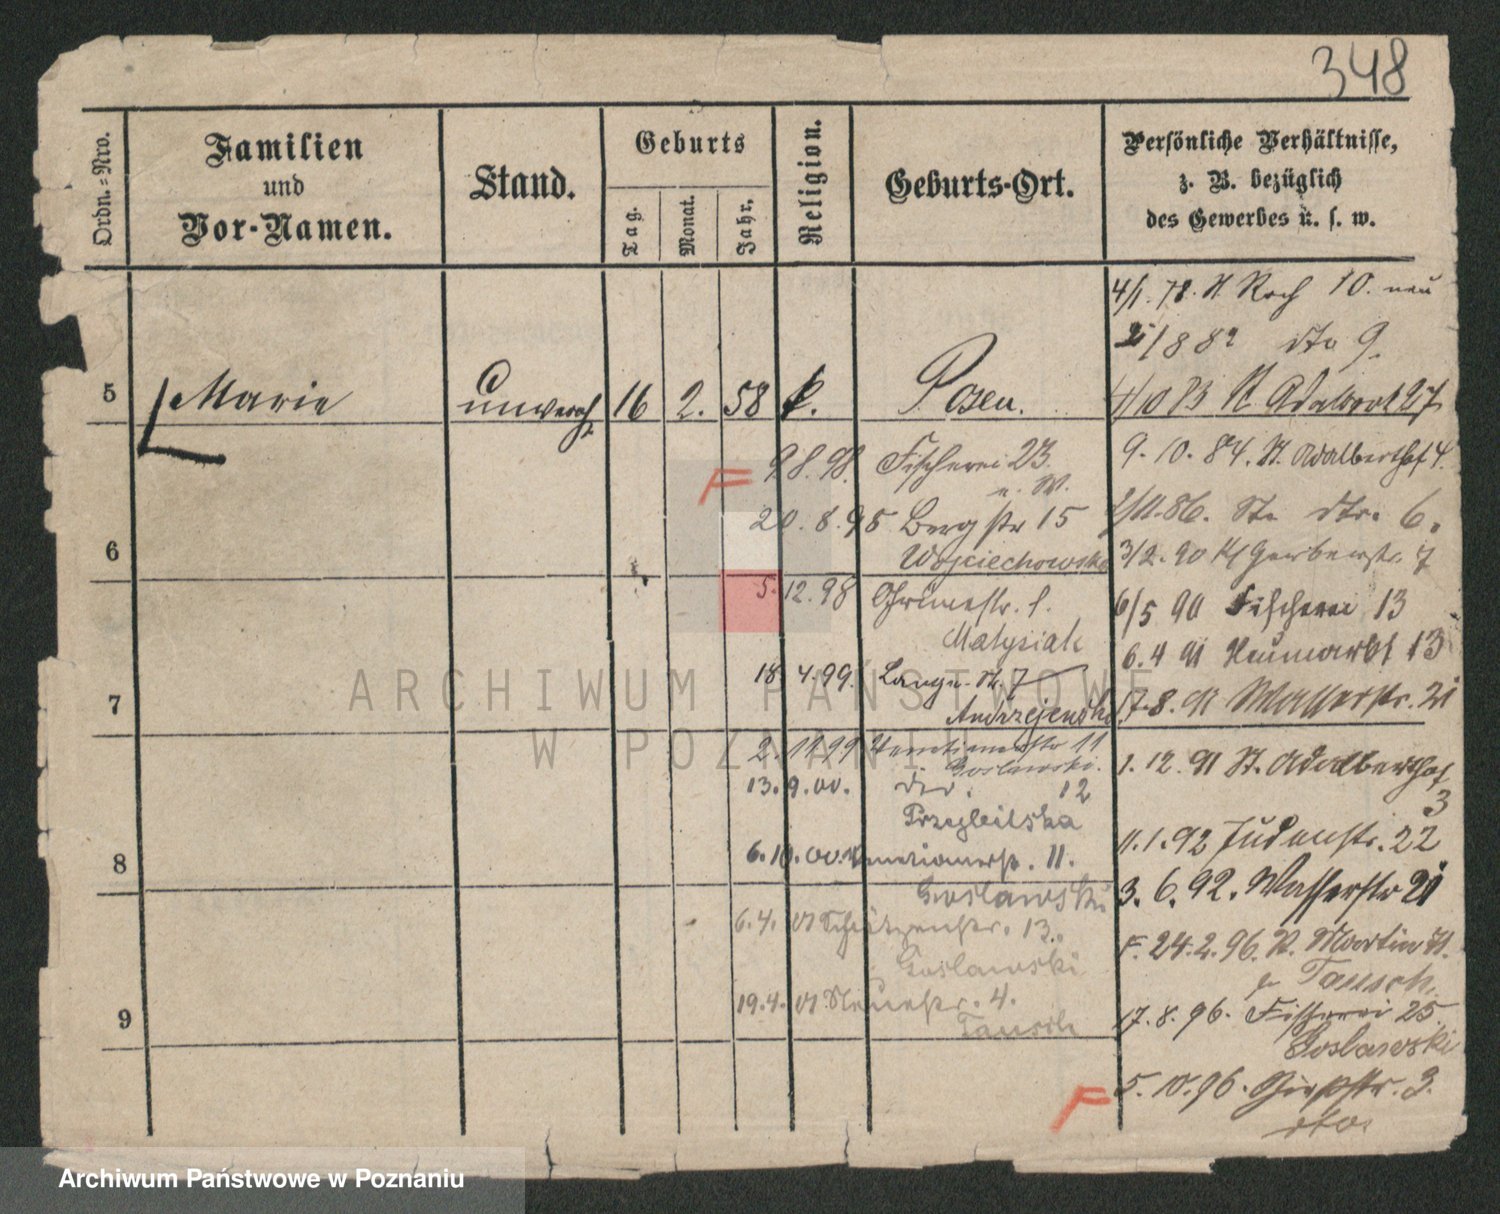 348
Ordn.=Nro.
Familien
und
Vor-Namen.
Stand.
Geburts
Tag.
Monat.
Jahr.
Religion.
Geburts-Ort.
Persönliche Verhältnisse,
z. B. bezüglich
des Gewerbes u. s. w.
4/1. 78. St Roch 10. neu
/882 dto 9.
5 Marie unverh 16 2. 58 k. Posen.
4/10 83 St Adalbert 27
9.8.98. Fischerei 23
9. 10. 84. St. Adalberthof 4.
20.8.98 Bergstr 15
86. 6.
6 Wojciechowska
3/2. 90 Gerberstr. 7
5.12.98
6/5 90 Fischerei 13
Matysiak
6.4 91 Neumarkt 13
18.4.99. Lange-Str. 7
7 Andrzejewska
17.8.91 Wasserstr. 21
2. 11 99 11
Goslawski.
1. 12. 91 St. Adalberthof
3
13.9.00. 12
Przybilska
11.1.92 Judenstr. 22
8 6.10.00. Venetianerstr. 11.
Goslawski
3. 6. 92. Wasserstr 21
6.4. 01 Schützenstr. 13.
F. 24.2.96. St. Martin
Goslawski
Tausch.
9 19.4. 01 Neuestr. 4.
Tausch
17.8.96. Fischerei 25
Goslawski
F 5.10.96. 3.
dto.
ARCHIWUM PAŃSTWOWE
W POZNANIU
Archiwum Państwowe w Poznaniu